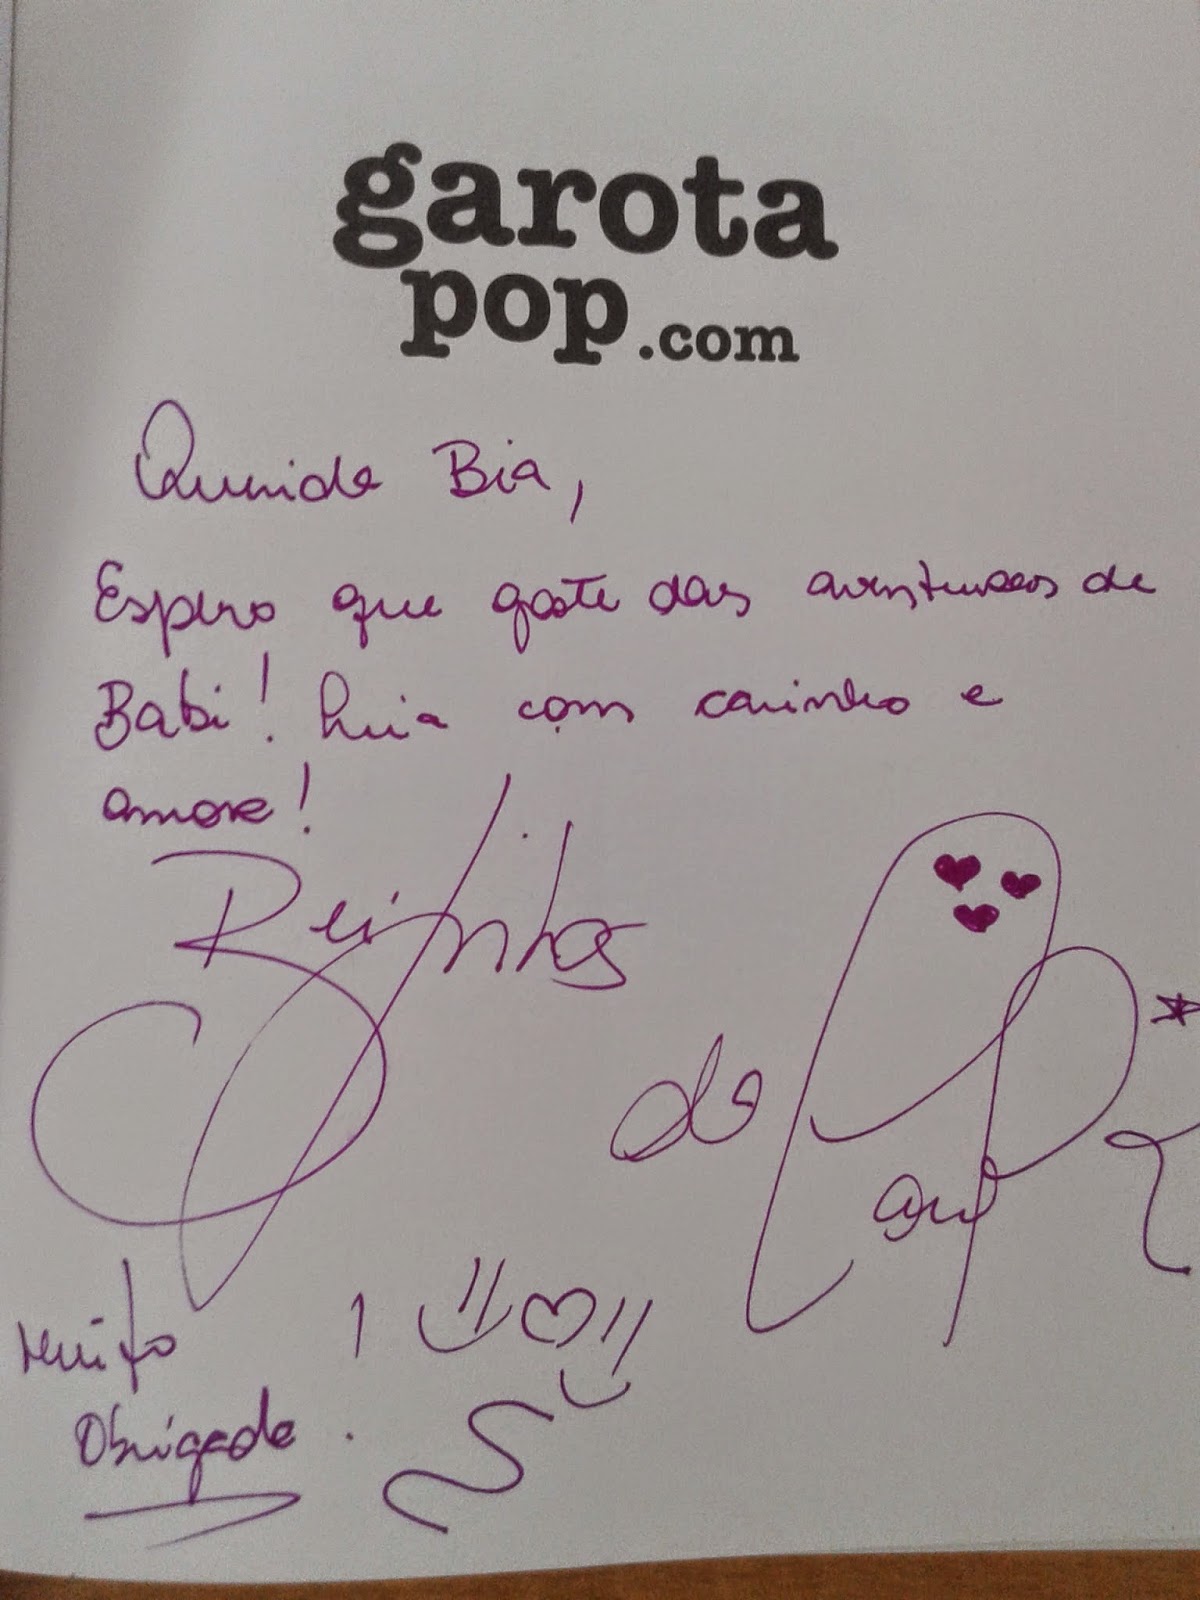 garota
pop.com
Querida Bia,
Espero que goste das aventuras de
Babi! Leia com carinho e
amor!
Beijinhos
da
Muito
Obrigada!